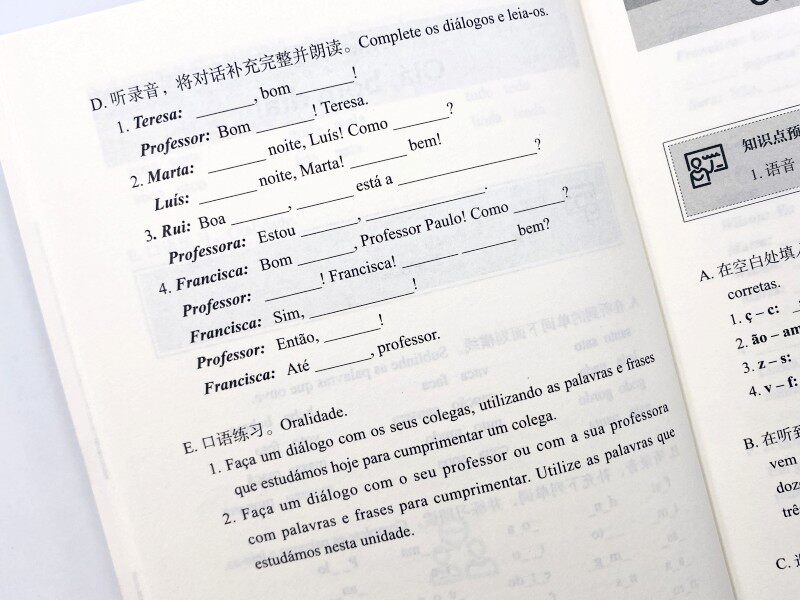 D. 听录音，将对话补充完整并朗读。Complete os diálogos e leia-os.
1. Teresa: ______, bom ______!
Professor: Bom ______! Teresa.
2. Marta: ______ noite, Luís! Como ______?
Luís: ______ noite, Marta! ______ bem!
3. Rui: Boa ______, ______ está a ______________?
Professora: Estou ______, ____________.
4. Francisca: Bom ______, Professor Paulo! Como ______?
Professor: ______! Francisca! ______ ______ bem?
Francisca: Sim, ____________!
Professor: Então, ______!
Francisca: Até ______, professor.
E. 口语练习。Oralidade.
1. Faça um diálogo com os seus colegas, utilizando as palavras e frases
que estudámos hoje para cumprimentar um colega.
2. Faça um diálogo com o seu professor ou com a sua professora
com palavras e frases para cumprimentar. Utilize as palavras que
estudámos nesta unidade.
知识点预
1. 语音
A. 在空白处填
corretas.
1. ç – c:
2. ão – am
3. z – s:
4. v – f:
B. 在听到
vem
doz
trê
C.